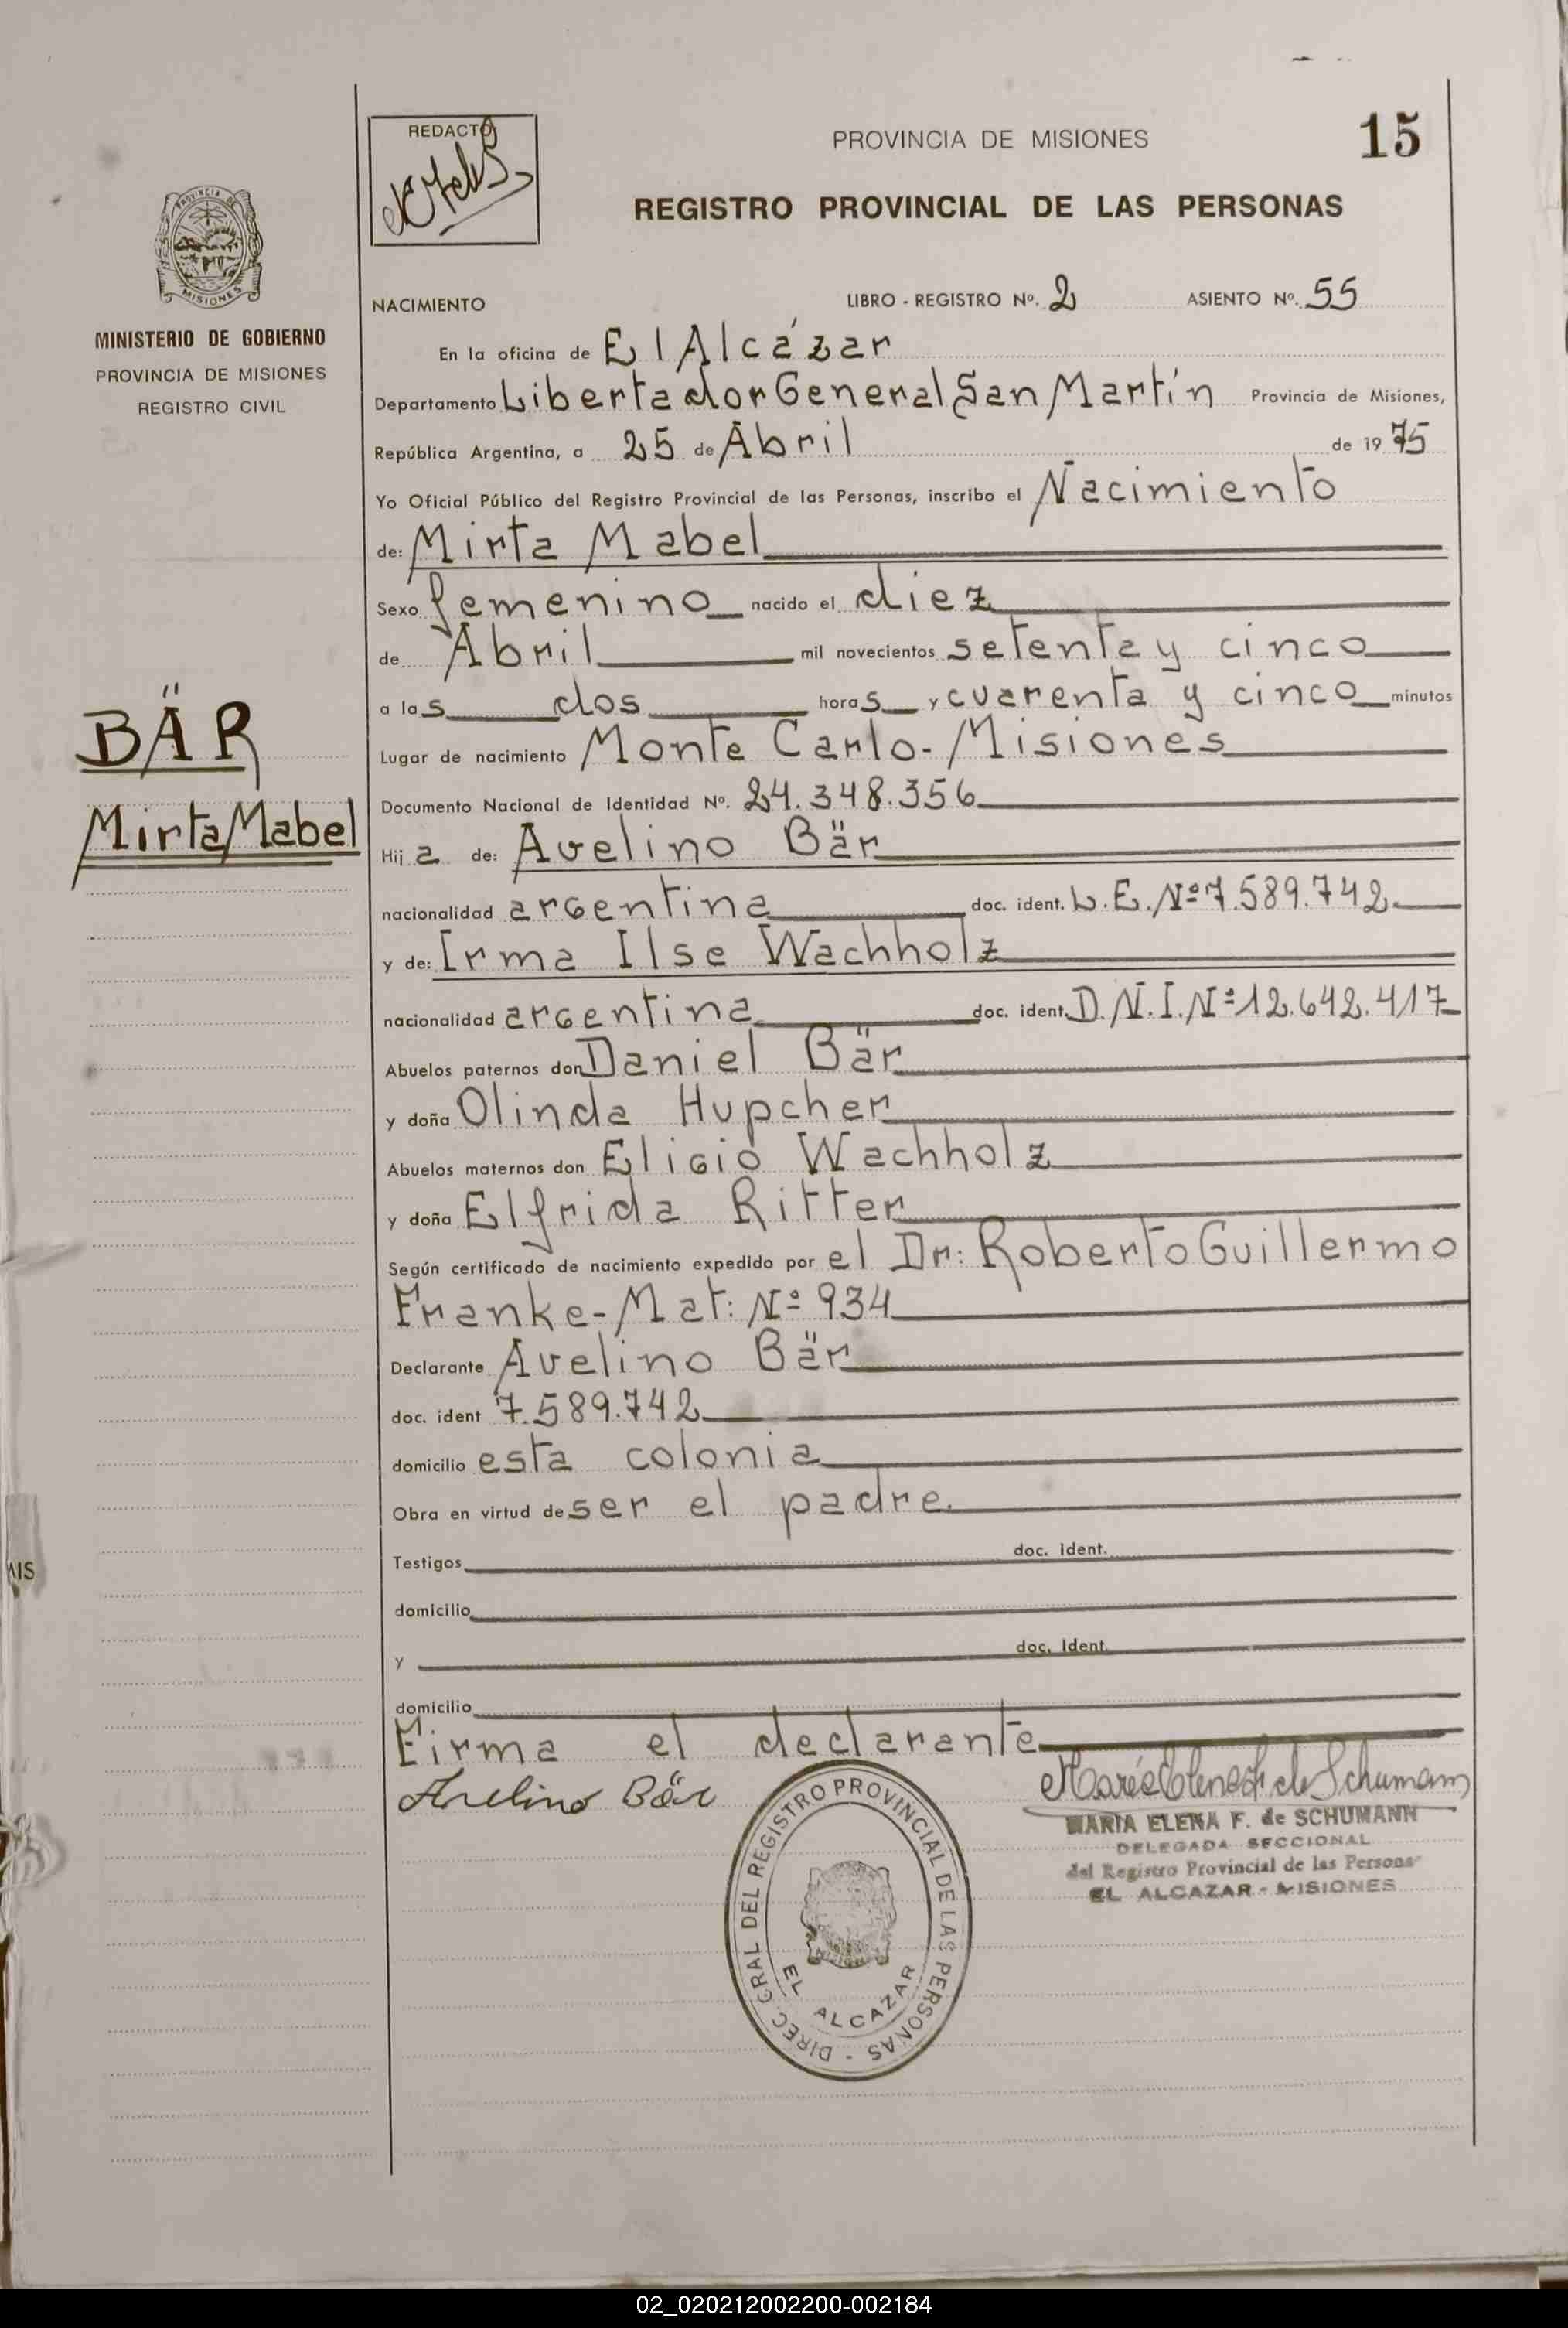 REDACTÓ
PROVINCIA DE MISIONES
15
REGISTRO PROVINCIAL DE LAS PERSONAS
PROVINCIA DE
MISIONES
MINISTERIO DE GOBIERNO
PROVINCIA DE MISIONES
REGISTRO CIVIL
NACIMIENTO LIBRO - REGISTRO Nº. 2 ASIENTO Nº. 55
En la oficina de El Alcázar
Departamento Libertador General San Martín Provincia de Misiones,
República Argentina, a 25 de Abril de 1975
Yo Oficial Público del Registro Provincial de las Personas, inscribo el Nacimiento
de: Mirta Mabel
Sexo femenino nacido el diez
de Abril mil novecientos setenta y cinco
a las dos horas y cuarenta y cinco minutos
BÄR
Lugar de nacimiento Monte Carlo - Misiones
Documento Nacional de Identidad Nº. 24.348.356
Mirta Mabel
Hija de: Avelino Bär
nacionalidad argentina doc. ident. L.E. Nº 7.589.742
y de: Irma Ilse Wachholz
nacionalidad argentina doc. ident. D.N.I. Nº 12.642.417
Abuelos paternos don Daniel Bär
y doña Olinda Hupcher
Abuelos maternos don Eligio Wachholz
y doña Elfrida Ritter
Según certificado de nacimiento expedido por el Dr: Roberto Guillermo
Franke - Mat: Nº 934
Declarante Avelino Bär
doc. ident 7.589.742
domicilio esta colonia
Obra en virtud de ser el padre.
Testigos doc. ident.
domicilio
y doc. ident.
domicilio
Firma el declarante
Avelino Bär
María Elena F. de Schumann
MARIA ELENA F. de SCHUMANN
DELEGADA SECCIONAL
del Registro Provincial de las Personas
EL ALCAZAR - MISIONES
DIREC. GRAL DEL REGISTRO PROVINCIAL DE LAS PERSONAS -
EL ALCAZAR
AIS
02_020212002200-002184